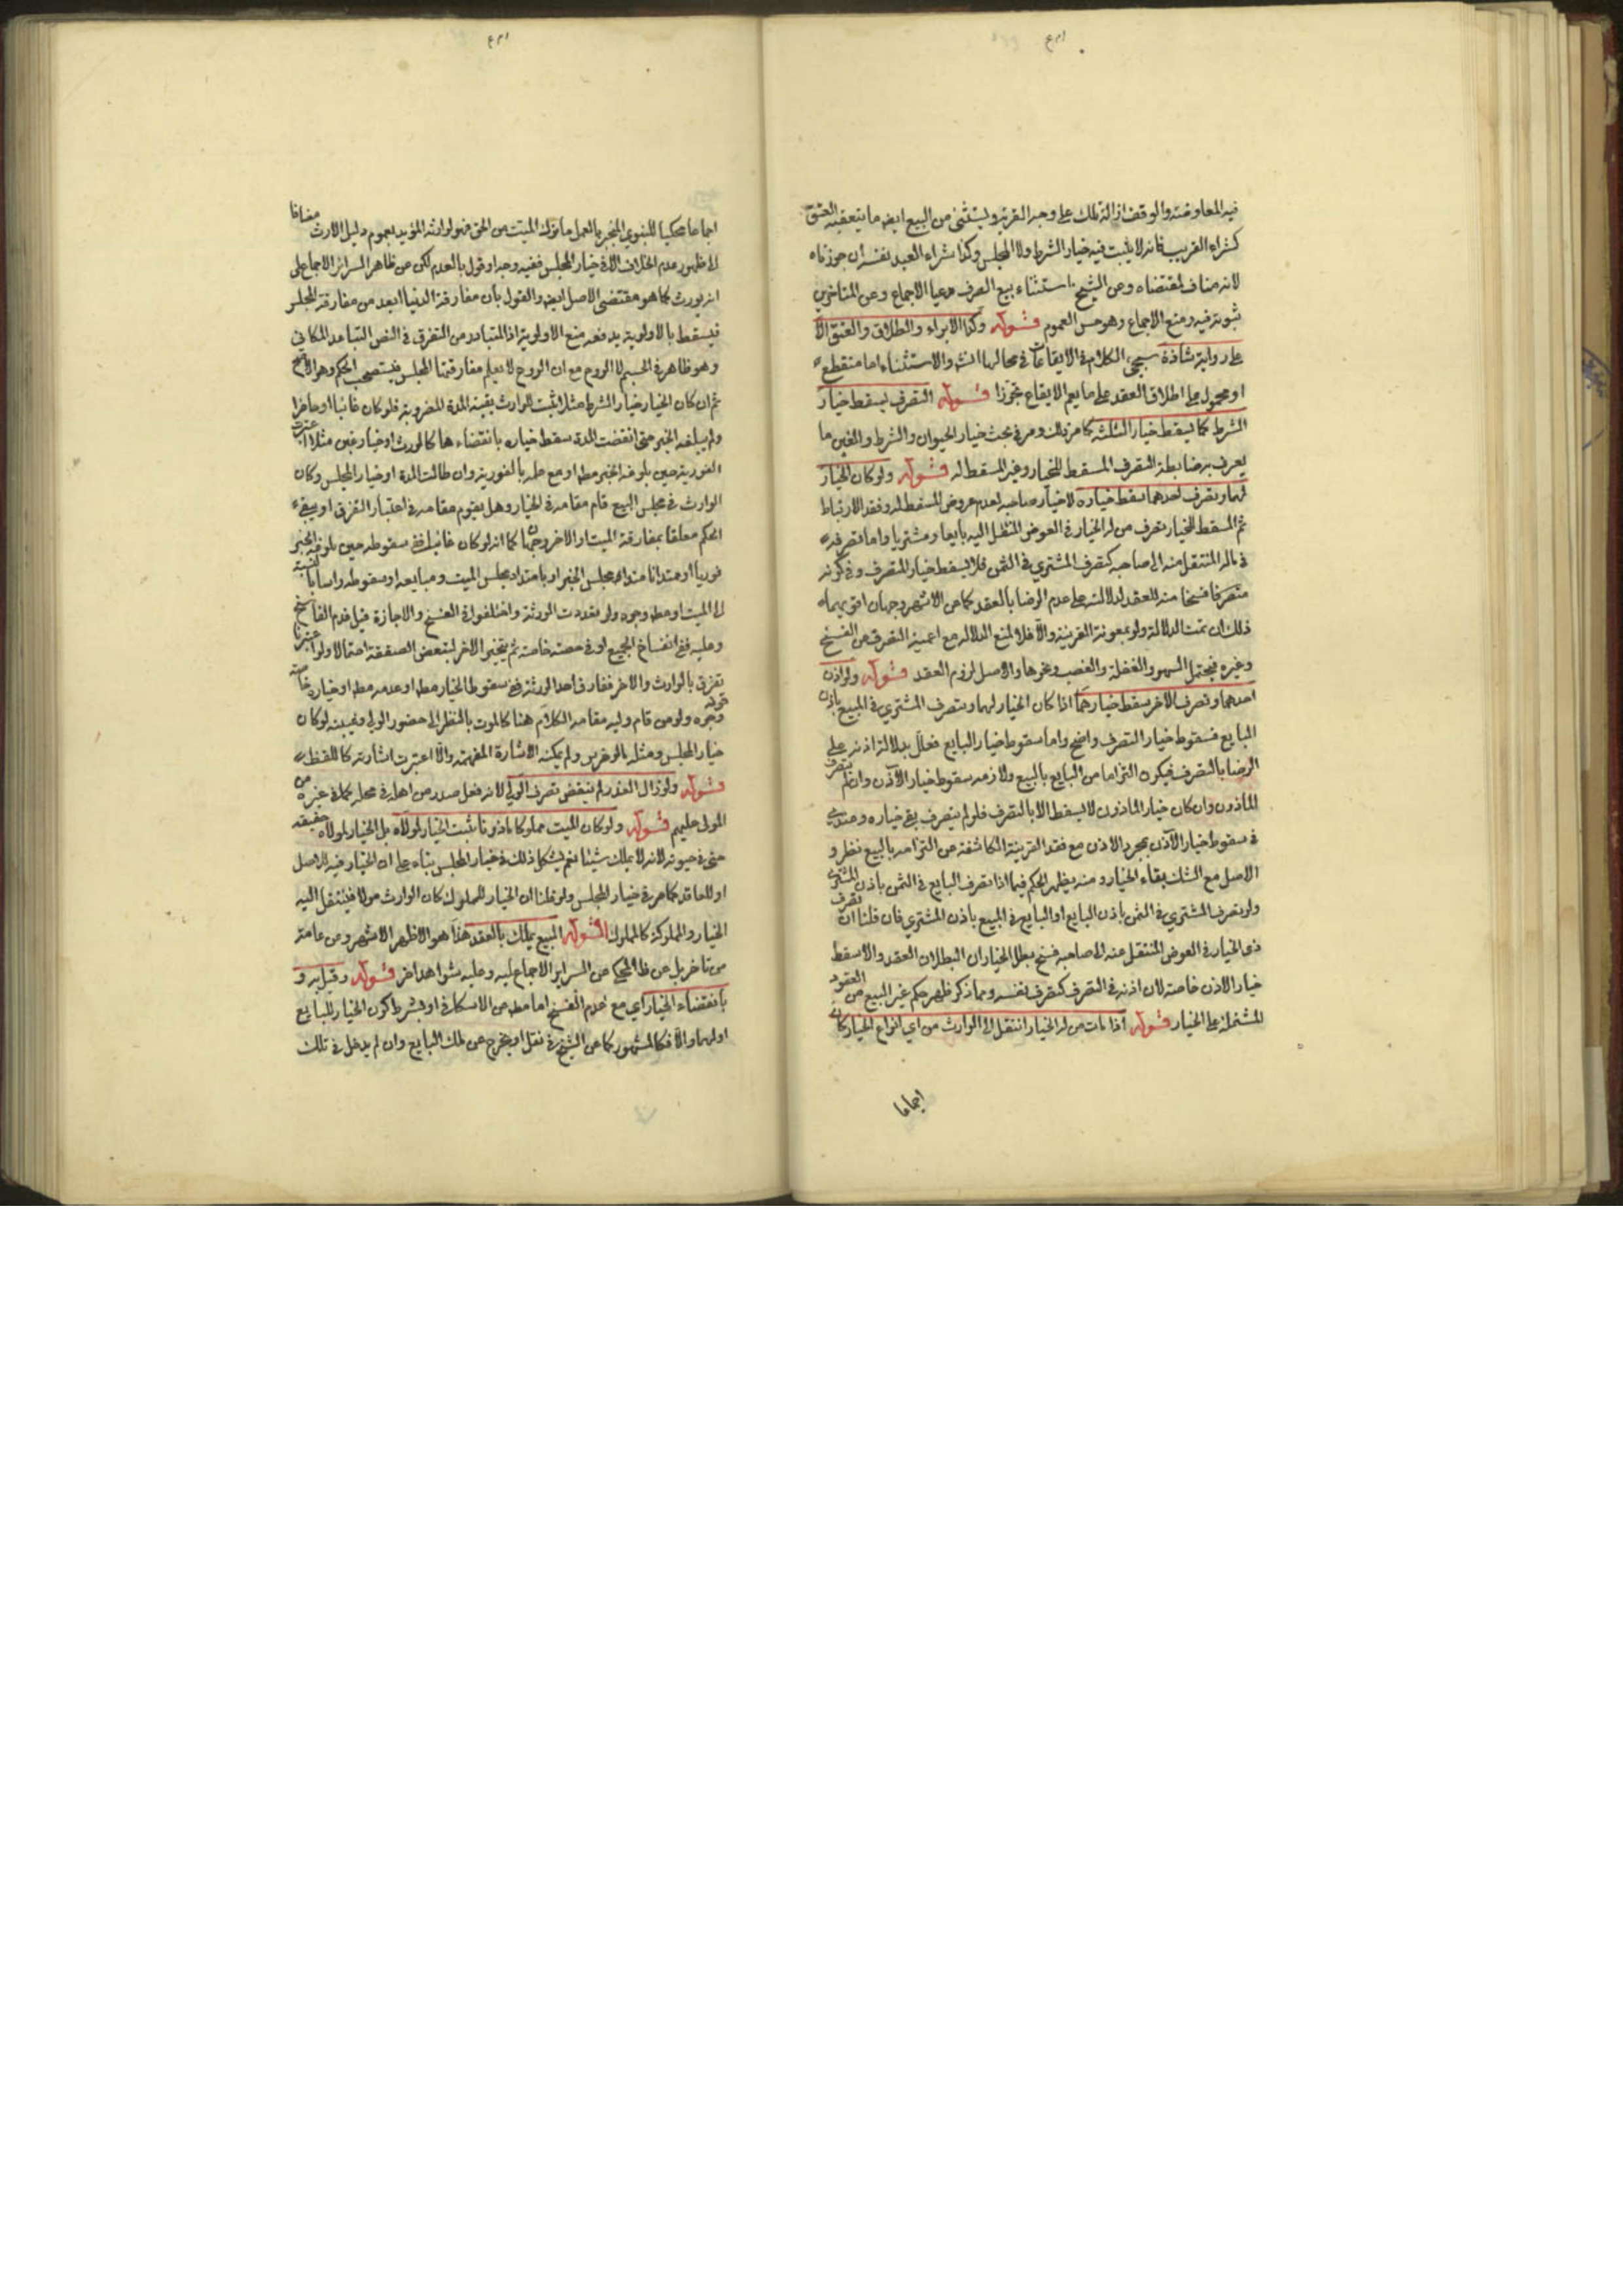 فيه المعاوضة والوقف ازالة ملك على وجه القربة ويستثنى من البيع ايضا ما يتعقبه العتق
كشراء القريب فانه لا يثبت فيه خيار الشرط ولا المجلس وكذا شراء العبد نفسه ان جوزناه
لانه مناف لمقتضاه وعن الشيخ استثناء بيع الصرف مدعيا الاجماع وعن المتاخرين
ثبوته فيه ومنع الاجماع وهو حسن للعموم قوله وكذا الابراء والطلاق والعتق الا
على رواية شاذة سيجيء الكلام في الايقاعات في محالها انشه والاستثناء اما منقطع
او محمول على اطلاق العقد على ما يعم الايقاع تجوزا قوله التصرف يسقط خيار
الشرط كما يسقط خيار الثلثة كما مر بذلك ومر في بحث خيار الحيوان والشرط والغبن ما
يعرف به ضابطة التصرف المسقط للخيار وغير المسقط له قوله ولو كان الخيار
لهما وتصرف احدهما سقط خياره لا خيار صاحبه لعدم عروض المسقط له وفقد الارتباط
ثم المسقط للخيار تصرف من له الخيار في العوض المنتقل اليه بايعا ومشتريا واما تصرفه
في ماله المنتقل منه الى صاحبه كتصرف المشتري في الثمن فلا يسقط خيار المتصرف وفي كونه
متصرفا فسخا منه للعقد لدلالته على عدم الرضا بالعقد كما عن الاشهر وجهان اقويهما
ذلك ان تمت الدلالة ولو بمعونة القرينة والا فلا لمنع الدلالة مع اعمية التصرف من الفسخ
وغيره فيحتمل السهو والغفلة والغصب ونحوها والاصل لزوم العقد قوله ولو اذن
احدهما وتصرف الاخر سقط خيارهما اذا كان الخيار لهما وتصرف المشتري في المبيع باذن
البايع فسقوط خيار التصرف واضح واما سقوط خيار البايع فعلل بدلالة اذنه على
الرضا بالتصرف فيكون التزاما من البايع بالبيع ولازمه سقوط خيار الآذن وان لم يتصرف
الماذون وان كان خيار الماذون لا يسقط الا بالتصرف فلو لم يتصرف بقي خياره وعندي
في سقوط خيار الآذن بمجرد الاذن مع فقد القرينة الكاشفة عن التزامه بالبيع نظر و
الاصل مع الشك بقاء الخيار ومنه يظهر الحكم فيما اذا تصرف البايع في الثمن باذن المشتري
ولو تصرف المشتري في الثمن باذن البايع او البايع في المبيع باذن المشتري فان قلنا ان تصرف
ذي الخيار في العوض المنتقل عنه الى صاحبه فسخ بطل الخياران لبطلان العقد والا سقط
خيار الاذن خاصة لان اذنه في التصرف كتصرف نفسه ومما ذكر ظهر حكم غير البيع من العقود
المشتملة على الخيار قوله اذا مات من له الخيار انتقل الى الوارث من اي انواع الخيار كان
اجماعا
اجماعا محكيا للنبوي المنجبر بالعمل ما ترك الميت من الحق فهو لوارثه المؤيد بعموم دليل الارث مضافا
الى ظهور عدم الخلاف الا في خيار المجلس ففيه وجه او قول بالعدم لكن عن ظاهر السرائر الاجماع على
انه يورث كما هو مقتضى الاصل ايضا والقول بان مفارقة الدنيا ابعد من مفارقة المجلس
فيسقط بالاولوية يدفعه منع الاولوية اذ المتبادر من التفرق في النص التباعد المكاني
وهو ظاهر في الجسم لا الروح مع ان الروح لا يعلم مفارقتها المجلس فيستصحب الحكم وهو الاصح
ثم ان كان الخيار خيار الشرط مثلا اثبت للوارث بقية المدة المضروبة فلو كان غائبا او حاضرا
ولم يبلغه الخبر حتى انقضت المدة سقط خياره بانقضاءها كالمورث او خيار غبن مثلا اعتبرت
الفورية حين بلوغه الخبر مطه او مع علمه بالفورية وان طالت المدة او خيار المجلس وكان
الوارث في مجلس البيع قام مقامه في الخيار وهل يقوم مقامه في اعتبار التفرق او يبقى
الحكم معلقا بمفارقة الميت والاخر وجهان كما انه لو كان غائبا ففي سقوطه حين بلوغه الخبر
فوريا او ممتدا بامتداد مجلس الخبر او بامتداد مجلس الميت ومبايعه او سقوطه راسا بالنسبة
الى الميت او مطه وجوه ولو تعددت الورثة واختلفوا في الفسخ والاجازة قيل قدم الفاسخ
وعليه ففي انفساخ الجميع او في حصته خاصة ثم يتخير الاخر لتبعض الصفقة احتمالا ولو اعتبرنا
تفرق بالوارث والاخر ففارق احد الورثة ففي سقوط الخيار مطه او عدمه مطه او خياره خاصة
وجوه قوله ولو جن قام وليه مقامه الكلام هنا كالموت بالنظر الى حضور الولي وغيبته لو كان
خيار المجلس ومثله ما لو خرس ولم يمكنه الاشارة المفهمة والا اعتبرت اشارته كاللفظ
قوله ولو زال العذر لم ينقض تصرف الولي لانه فعل صدر من اهله في محله كما في غيره من
المولى عليهم قوله ولو كان الميت مملوكا ماذونا ثبت الخيار لمولاه بل الخيار لمولاه حقيقة
حتى في حيوته لانه لا يملك شيئا نعم يشكل ذلك في خيار المجلس بناء على ان الخيار فيه للاصل
او للعاقد كما مر في خيار المجلس ولو قلنا ان الخيار للمملوك كان الوارث مولاه فينتقل اليه
الخيار والمملوكة كالمملوك قوله المبيع يملك بالعقد هذا هو الاظهر الاشهر ومن عامة
من تاخر بل عن ظ المحكي عن السراير الاجماع عليه وعليه شواهد اخر قوله وقيل به و
بانقضاء الخيار اي مع عدم الفسخ اما مطه عن الاسكافي او بشرط كون الخيار للبايع
او لهما والا فكالمشهور كما عن الشيخ في نقل او يخرج عن ملك البايع وان لم يدخل في تلك